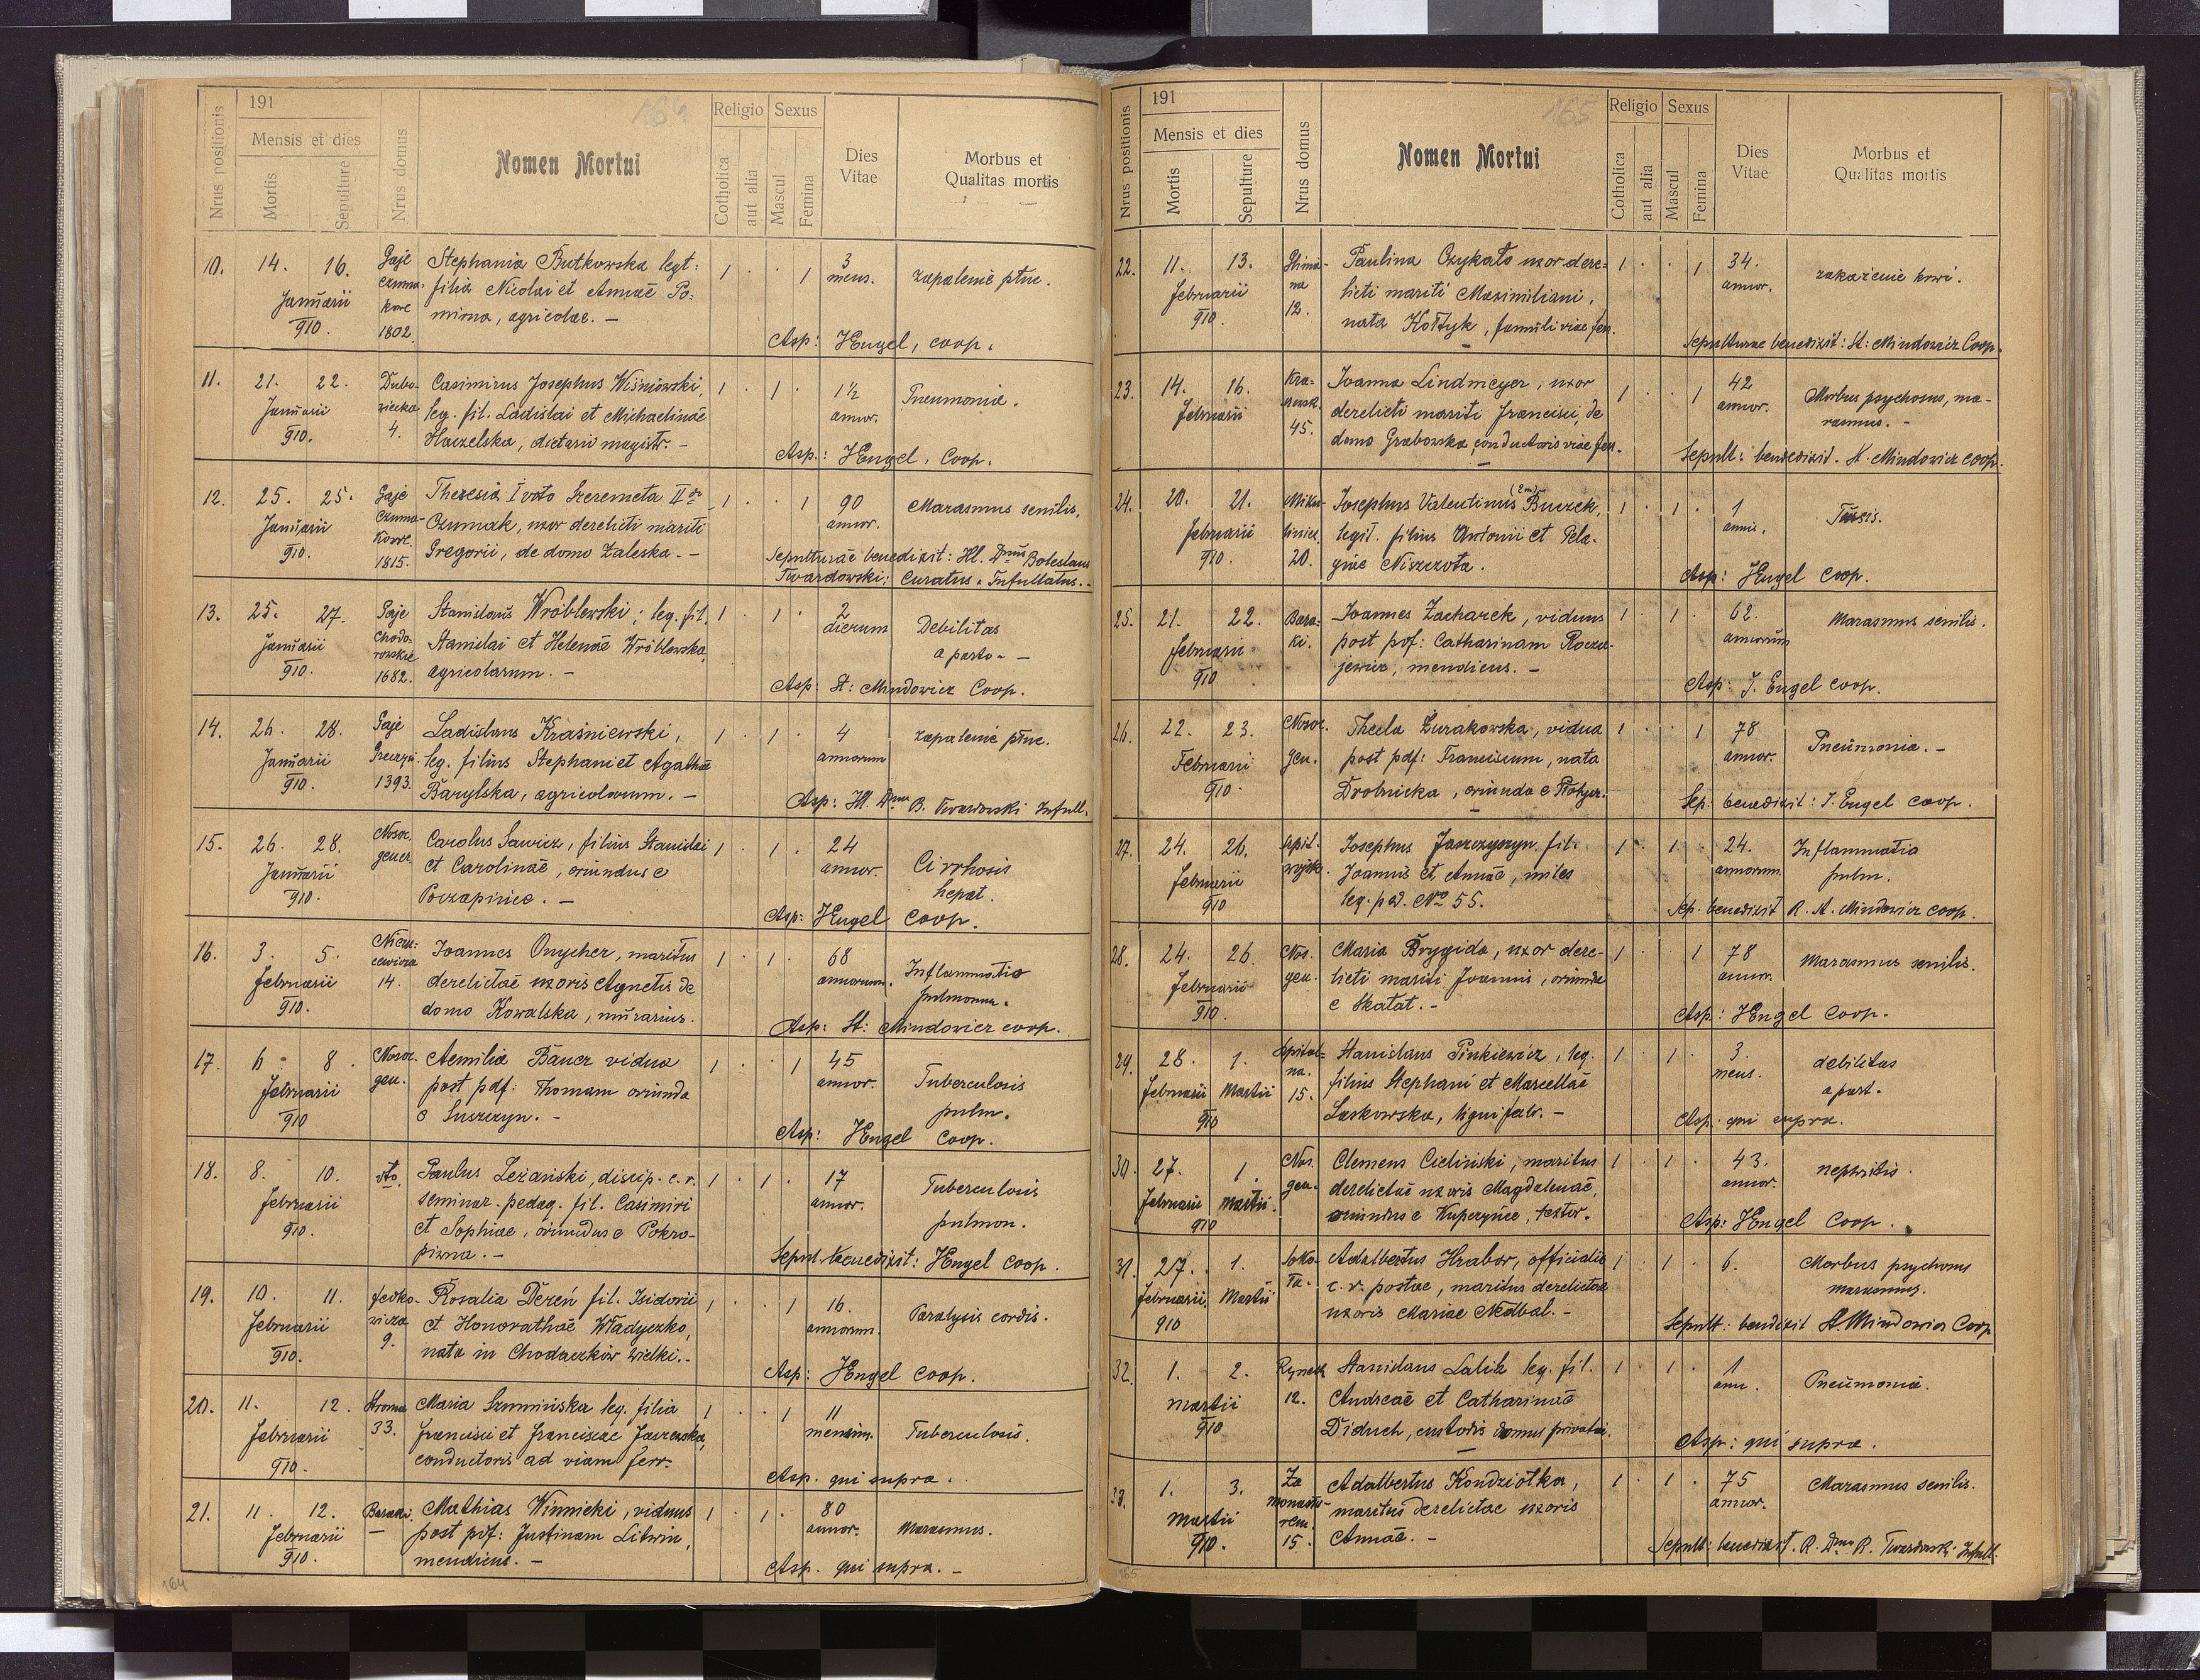 164
Nrus positionis
191
Mensis et dies
Mortis
Sepulture
Nrus domus
Nomen Mortui
Religio
Cotholica
aut alia
Sexus
Mascul
Femina
Dies Vitae
Morbus et
Qualitas mortis
10. 14. 16. Januarii 910. Gaje Czuma- kowe 1802.
Stephania Butkowska legt:
filia Nicolai et Annae Po-
mirna, agricolae. —
1 · · 1 3 mens. zapalenie płuc.
Asp: HEngel, coop.
11. 21. 22. Januarii 910. Dubo- wiecka 4.
Casimirus Josephus Wiśniowski,
leg. fil. Ladislai et Michaelinae
Haczelska, dietarii magistr. —
1 · 1 · 1½ annor. Pneumonia.
Asp.: HEngel, Coop.
12. 25. 25. Januarii 910. Gaje Czuma- kowe. 1815.
Theresia I voto Szeremeta II do
Czumak, uxor derelicti mariti
Gregorii, de domo Zaleska. —
1 · · 1 90 annor. Marasmus senilis.
Sepulturae benedixit: Ill. Dnus Boleslaus
Twardowski; Curatus - Infullatus. -
13. 25. 27. Januarii 910. Gaje Chodo- rowskie 1682.
Stanislaus Wróblewski; leg. fil.
Stanislai et Helenae Wróblewska,
agricolarum. —
1 · 1 · 2 dierum Debilitas
a parto - —
Asp: St: Mindowicz Coop.
14. 26. 28. Januarii 910. Gaje 1393.
Ladislaus Kraśniewski,
leg. filius Stephani et Agathae
Barylska, agricolarum. —
1 · 1 · 4 annorum zapalenie płuc.
Asp: Ill. Dnus B. Twardowski Infull.
15. 26. 28. Januarii 910. Nosoc. gener.
Carolus Sawicz, filius Stanislai
et Carolinae, oriundus e
Poczapińce. —
1 · 1 · 24 annor. Cirrhosis
hepat.
Asp: HEngel Coop.
16. 3. 5. Februarii 910. Niem- cewicza 14.
Joannes Onycher, maritus
derelictae uxoris Agnetis de
domo Kowalska, murarius.
1 · 1 · 68 annorum. Inflammatio
pulmonum.
Asp: St: Mindowicz coop.
17. 6 - 8. Februarii 910 Nosoc. gen.
Aemilia Bauer vidua
post pdf: Thomam oriunda
e Suszczyn. —
1 · · 1 45 annor. Tuberculosis
pulm.
Asp: HEngel Coop.
18. 8. 10. Februarii 910. dto.
Paulus Leżański, discip. c. r.
seminar. pedag. fil. Casimiri
et Sophiae, oriundus e Pokro-
piwna. —
1 · 1 · 17 annor. Tuberculosis
pulmon.
Sepult. benedixit: HEngel Coop.
19. 10. 11. Februarii 910. Fedko- wicza 9.
Rosalia Dereń fil. Isidorii
et Honorathae Władyczko,
nata in Chodaczków wielki. -
1 · · 1 16. annorum. Paralysis cordis.
Asp: HEngel Coop.
20. 11. 12. Februarii 910. Stroma 33.
Maria Szumińska leg. filia
Francisci et Franciscae Jaszewska,
conductoris ad viam ferr.
1 · · 1 11 mensium. Tuberculosis.
Asp. qui supra.
21. 11. 12. Februarii 910. Baraki
Mathias Winnicki, viduus
post pdf: Justinam Litwin,
mendicus. —
1 · 1 · 80 annor. Marasmus.
Asp. qui supra. —
164
165
Nrus positionis
191
Mensis et dies
Mortis
Sepulture
Nrus domus
Nomen Mortui
Religio
Cotholica
aut alia
Sexus
Mascul
Femina
Dies Vitae
Morbus et
Qualitas mortis
22. 11. 13. Februarii 910. 12.
Paulina Czykało uxor dere-
licti mariti Maximiliani,
nata Kołtyk, famuli viae ferr.
1 · · 1 34. annor. zakażenie krwi.
Sepulturae benedixit: St: Mindowicz Coop.
23. 14. 16. Februarii 45.
Joanna Lindmeyer, uxor
derelicti mariti Francisci, de
domo Grabowska, conductoris viae ferr.
1 · · 1 42 annor. Morbus psychosus, ma-
rasmus. -
Sepult: benedixit. St. Mindowicz coop.
24. 20. 21. Februarii 910. Miku- liniec. 20.
Josephus Valentinus (2 m) Buczek,
legit. filius Antonii et Pela-
giae Niszczota.
1 · 1 · 1 anni. Tussis.
Asp: HEngel Coop.
25. 21. 22. Februarii 910 Bara- ki.
Joannes Zacharek, viduus
post pdf: Catharinam Roczu-
jewicz, mendicus. —
1 · 1 · 62. annorum Marasmus senilis.
Asp: J. Engel coop.
26. 22. 23. Februarii 910. Nosoc. gen.
Thecla Żurakowska, vidua
post pdf: Franciscum, nata
Drobnicka, oriunda e
1 · · 1 78 annor. Pneumonia. -
Sep: benedixit: J. Engel coop.
27. 24. 26. Februarii 910 szpit. wojsk.
Josephus Jaszczyszyn fil.
Joannis et Annae, miles
leg. ped. No 55.
1 · 1 · 24. annorum. Inflammatio
pulm.
Sep. benedixit R. St. Mindowicz coop.
28. 24. 26. Februarii 910. Nos. gen.
Maria Brygida, uxor dere-
licti mariti Joannis, oriunda
e Skałat. -
1 · · 1 78 annor. Marasmus senilis.
Asp: HEngel Coop.
29. 28. 1. Februarii Martii 910 szpital- na. 15.
Stanislaus Pinkiewicz, leg.
filius Stephani et Marcellae
Laskowska, lignifabr. —
1 · 1 · 3. mens. debilitas
a part.
Asp. qui supra.
30. 27. 1. Februarii Martii. 910 Nos. gen.
Clemens Cieliński, maritus
derelictae uxoris Magdalenae,
oriundus e Kupczyńce, textor.
1 · 1 · 43. annor. nephritis.
Asp: HEngel Coop.
31. 27. 1. Februarii Martii 910 Soko- ła.
Adalbertus Hrabor, officialis
c. r. postae, maritus derelictae
uxoris Mariae Nedbal. -
1 · 1 · 6. Morbus psychosus
marasmus.
Sepult: bendixit St. Mindowicz Coop
32. 1. 2. Martii 910 Rynek 12.
Stanislaus Lalik leg. fil.
Andreae et Catharinae
Diduch, custodis domus privatae.
1 · 1 · 1 ann. Pneumonia.
Asp: qui supra.
33. 1. 3. Martii 910. Za monaste- rem. 15.
Adalbertus Kondziołka,
maritus derelictae uxoris
Annae. —
1 · 1 · 75 annor. Marasmus senilis.
Sepult: benedixit. R. Dnus B. Twardowski Infull.
165